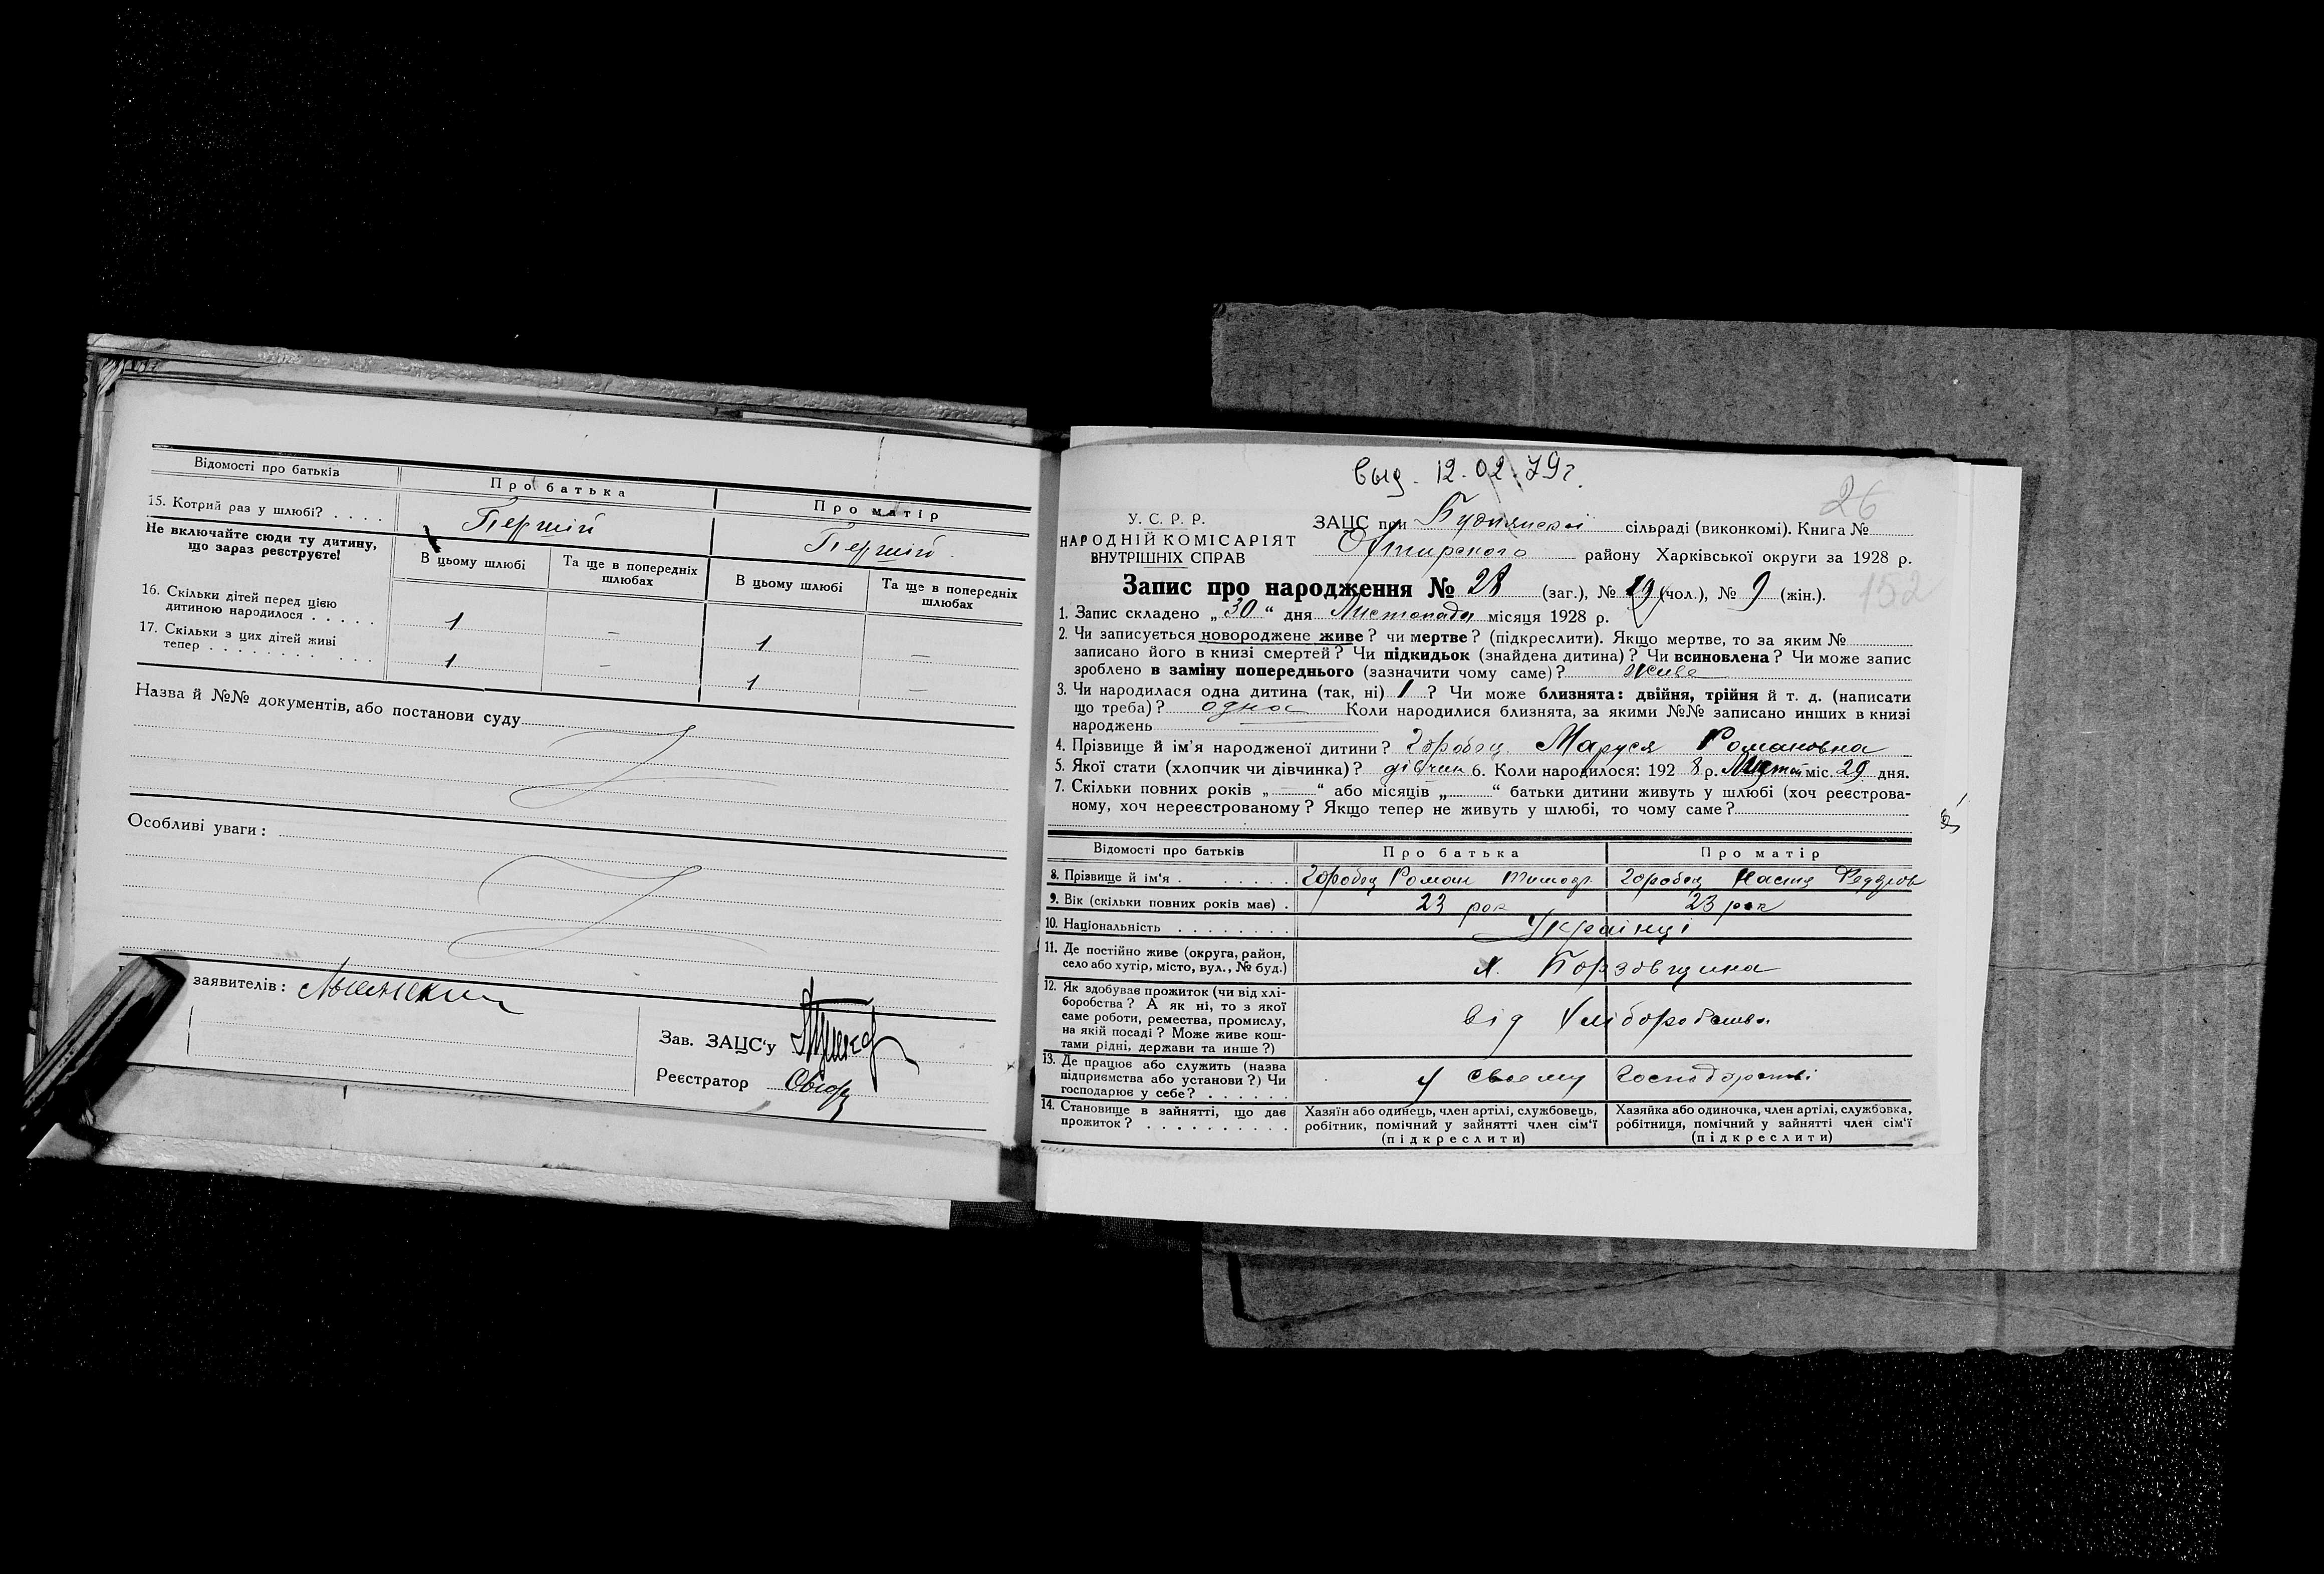 Відомості про батьків
Про батька
Про матір
15. Котрий раз у шлюбі? . . . .
Перший
Перший
Не включайте сюди ту дитину,
що зараз реєструєте!
В цьому шлюбі
Та ще в попередніх
шлюбах
В цьому шлюбі
Та ще в попередніх
шлюбах
16. Скільки дітей перед цією
дитиною народилося . . . . .
1
—
1
—
17. Скільки з цих дітей живі
тепер . . . . . . . . . . .
1
—
1
—
Назва й №№ документів, або постанови суду
Особливі уваги:
заявителів:
Зав. ЗАЦС'у
Реєстратор
Выд. 12.02.79г.
26
У. С. Р. Р.
НАРОДНІЙ КОМІСАРІЯТ
ВНУТРІШНІХ СПРАВ
ЗАЦС при сільраді (виконкомі). Книга №
району Харківської округи за 1928 р.
Запис про народження № 28 (заг.), № 19 (чол.), № 9 (жін.).
152
1. Запис складено „30“ дня Листопада місяця 1928 р.
2. Чи записується новороджене живе? чи мертве? (підкреслити). Якщо мертве, то за яким №
записано його в книзі смертей? Чи підкидьок (знайдена дитина)? Чи всиновлена? Чи може запис
зроблено в заміну попереднього (зазначити чому саме)? живе
3. Чи народилася одна дитина (так, ні) 1 ? Чи може близнята: двійня, трійня й т. д. (написати
що треба)? одна Коли народилися близнята, за якими №№ записано инших в книзі
народжень
4. Прізвище й ім'я народженої дитини? Горобец Маруся Романовна
5. Якої стати (хлопчик чи дівчинка)? дівчин 6. Коли народилося: 1928 р. Листоп міс. 29 дня.
7. Скільки повних років „—“ або місяців „ “ батьки дитини живуть у шлюбі (хоч реєстрова-
ному, хоч нереєстрованому? Якщо тепер не живуть у шлюбі, то чому саме?
Відомості про батьків
Про батька
Про матір
8. Прізвище й ім'я . . . . . . .
Горобец Роман Тимоф.
Горобец Настя Феддров
9. Вік (скільки повних років має) .
23 рок
23 рок
10. Національність . . . . . . . .
Українці
11. Де постійно живе (округа, район,
село або хутір, місто, вул., № буд.)
х. Борзовщина
12. Як здобуває прожиток (чи від хлі-
боробства? А як ні, то з якої
саме роботи, ремества, промислу,
на якій посаді? Може живе кош-
тами рідні, держави та инше?)
від хліборобства
13. Де працює або служить (назва
підприємства або установи?) Чи
господарює у себе? . . . . . .
у своему господорстві
14. Становище в зайнятті, що дає
прожиток? . . . . . . . . . .
Хазяїн або одинець, член артілі, службовець,
робітник, помічний у зайнятті член сім'ї
(підкреслити)
Хазяйка або одиночка, член артілі, службовка,
робітниця, помічний у зайнятті член сім'ї
(підкреслити)